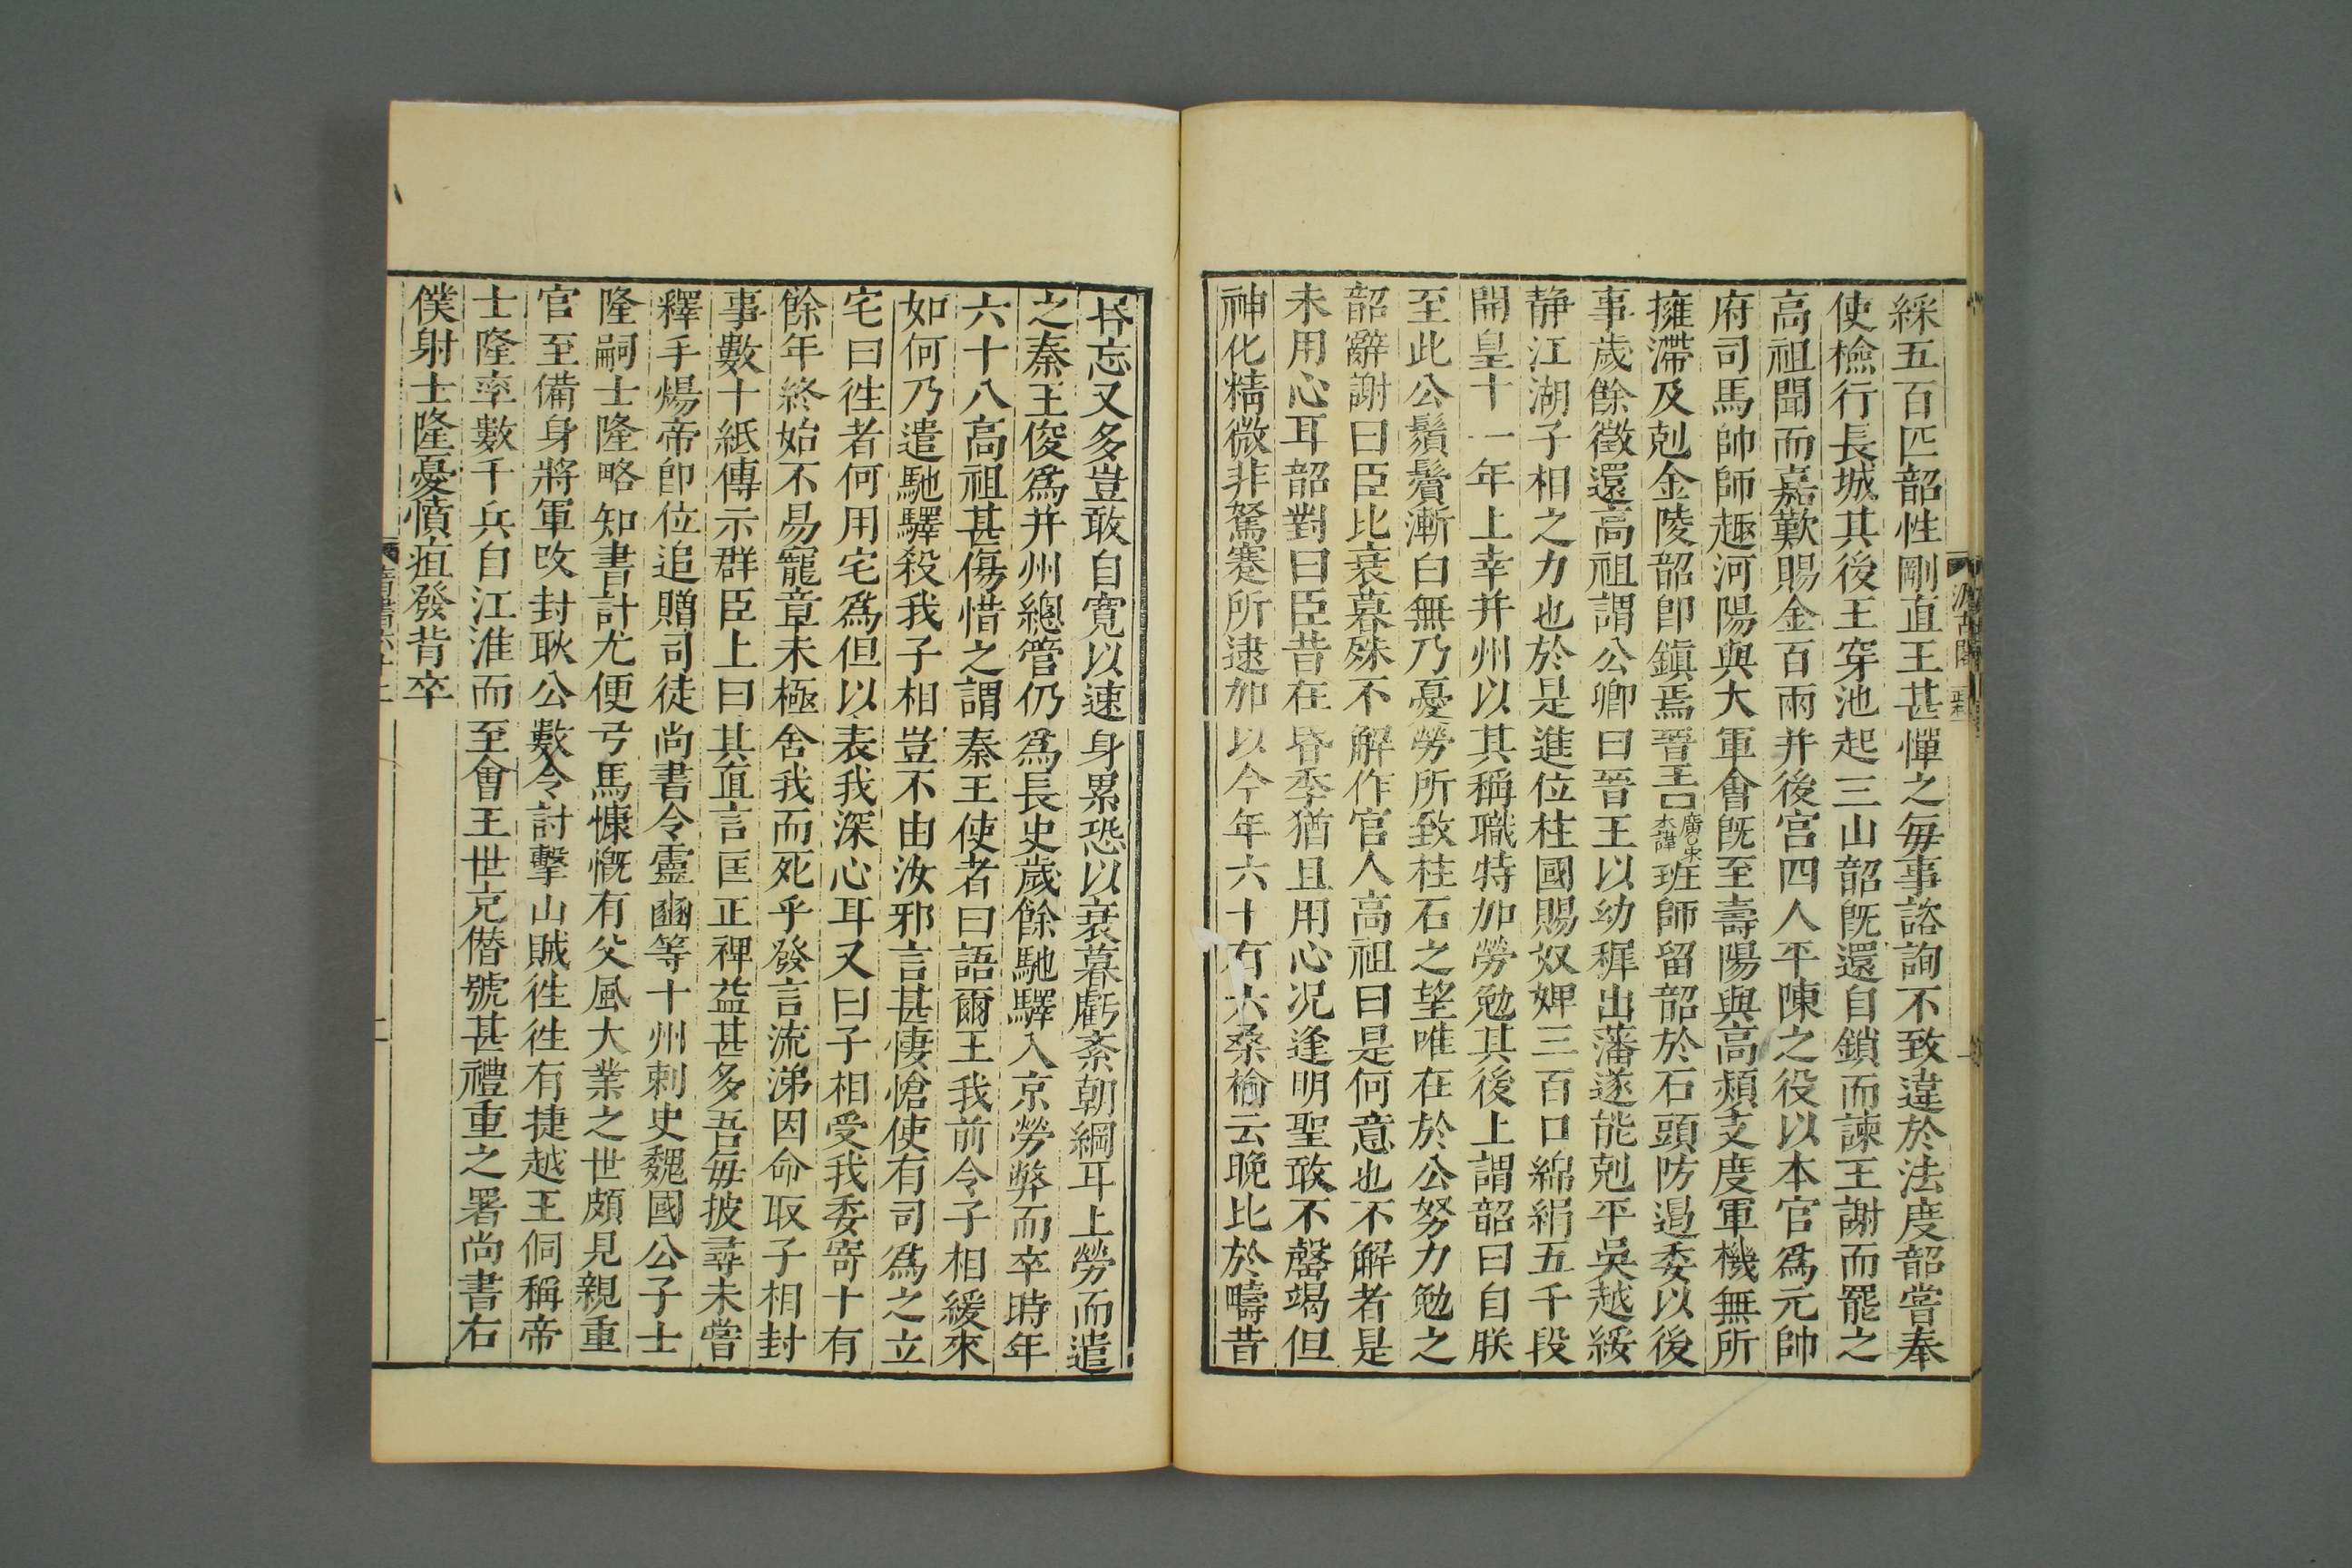 綵五百匹韶性剛直王甚憚之每事諮詢不致違於法度韶嘗奉
使檢行長城其後王穿池起三山韶旣還自鎖而諫王謝而罷之
高祖聞而嘉歎賜金百兩并後宮四人平陳之役以本官爲元帥
府司馬帥師趣河陽與大軍會旣至壽陽與高熲支度軍機無所
擁滯及剋金陵韶卽鎮焉晉王囗廣〇宋本諱班師留韶於石頭防遏委以後
事歲餘徵還高祖謂公卿曰晉王以幼穉出藩遂能剋平吳越綏
静江湖子相之力也於是進位柱國賜奴婢三百口綿絹五千段
開皇十一年上幸并州以其稱職特加勞勉其後上謂韶曰自朕
至此公鬚鬢漸白無乃憂勞所致柱石之望唯在於公努力勉之
韶辭謝曰臣比衰暮殊不解作官人高祖曰是何意也不解者是
未用心耳韶對曰臣昔在昏季猶且用心况逢明聖敢不罄竭但
神化精微非駑蹇所逮加以今年六十有六桑榆云晚比於疇昔
昏忘又多豈敢自寬以速身累恐以衰暮虧紊朝綱耳上勞而遣
之秦王俊爲并州總管仍爲長史歲餘馳驛入京勞弊而卒時年
六十八高祖甚傷惜之謂秦王使者曰語爾王我前令子相緩來
如何乃遣馳驛殺我子相豈不由汝邪言甚悽愴使有司爲之立
宅曰徃者何用宅爲但以表我深心耳又曰子相受我委寄十有
餘年終始不易寵章未極舍我而死乎發言流涕因命取子相封
事數十紙傳示群臣上曰其直言匡正裨益甚多吾每披尋未嘗
釋手煬帝卽位追贈司徒尚書令靈豳等十州刺史魏國公子士
隆嗣士隆略知書計尤便弓馬慷慨有父風大業之世頗見親重
官至備身將軍改封耿公數令討擊山賊徃徃有捷越王侗稱帝
士隆率數千兵自江淮而至會王世充僭號甚禮重之署尚書右
僕射士隆憂憤疽發背卒